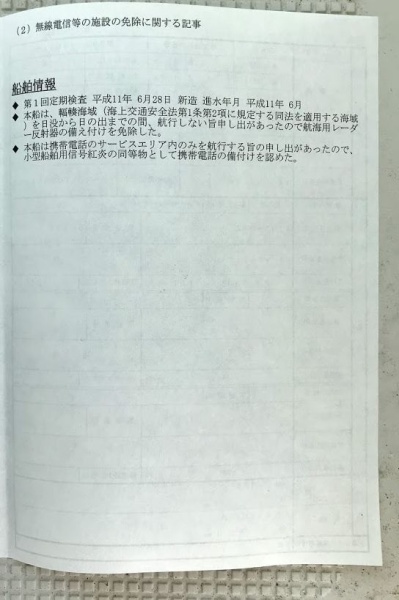 (2) 無線電信等の施設の免除に関する記事
船舶情報
◆ 第1回定期検査 平成11年 6月28日 新造 進水年月 平成11年 6月
◆ 本船は、輻輳海域（海上交通安全法第1条第2項に規定する同法を適用する海域
）を日没から日の出までの間、航行しない旨申し出があったので航海用レーダ
ー反射器の備え付けを免除した。
◆ 本船は携帯電話のサービスエリア内のみを航行する旨の申し出があったので、
小型船舶用信号紅炎の同等物として携帯電話の備付けを認めた。